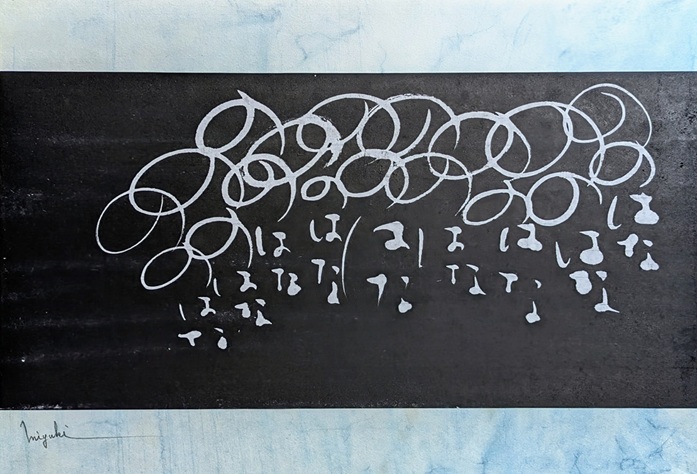 はな
はな
はな
はな
はな
はな
はな
はな
はな
Miyuki